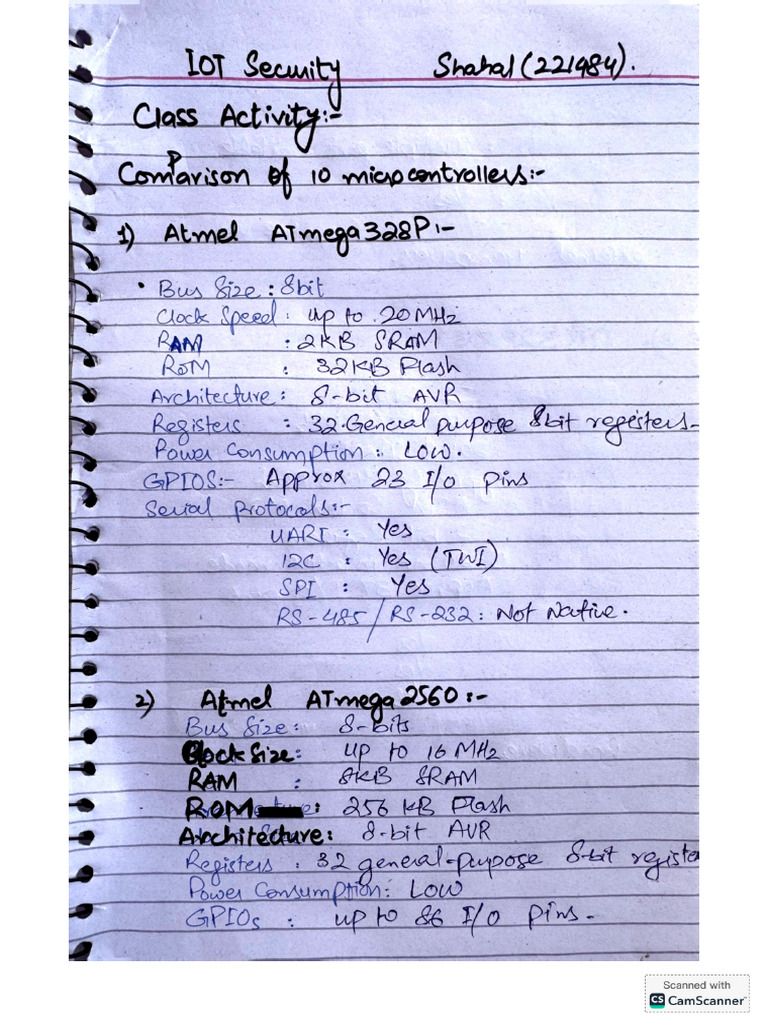 IOT Security Shahal (221984).
Class Activity:-
Comparison of 10 microcontrollers:-
1) Atmel ATmega328P:-
• Bus Size : 8bit
Clock Speed : up to 20MHz
RAM : 2KB SRAM
ROM : 32KB Flash
Architecture : 8-bit AVR
Registers : 32 General purpose 8bit registers
Power Consumption : Low.
GPIOS:- Approx 23 I/O pins
Serial Protocols:-
UART : Yes
I2C : Yes (TWI)
SPI : Yes
RS-485/RS-232 : Not Native.
2) Atmel ATmega2560:-
Bus Size: 8-bits
Clock Size: up to 16 MHz
RAM : 8KB SRAM
ROM : 256 KB Flash
Architecture: 8-bit AVR
Registers : 32 general-purpose 8-bit registe
Power Consumption : Low
GPIOs : up to 86 I/O Pins-
Scanned with
CS CamScanner